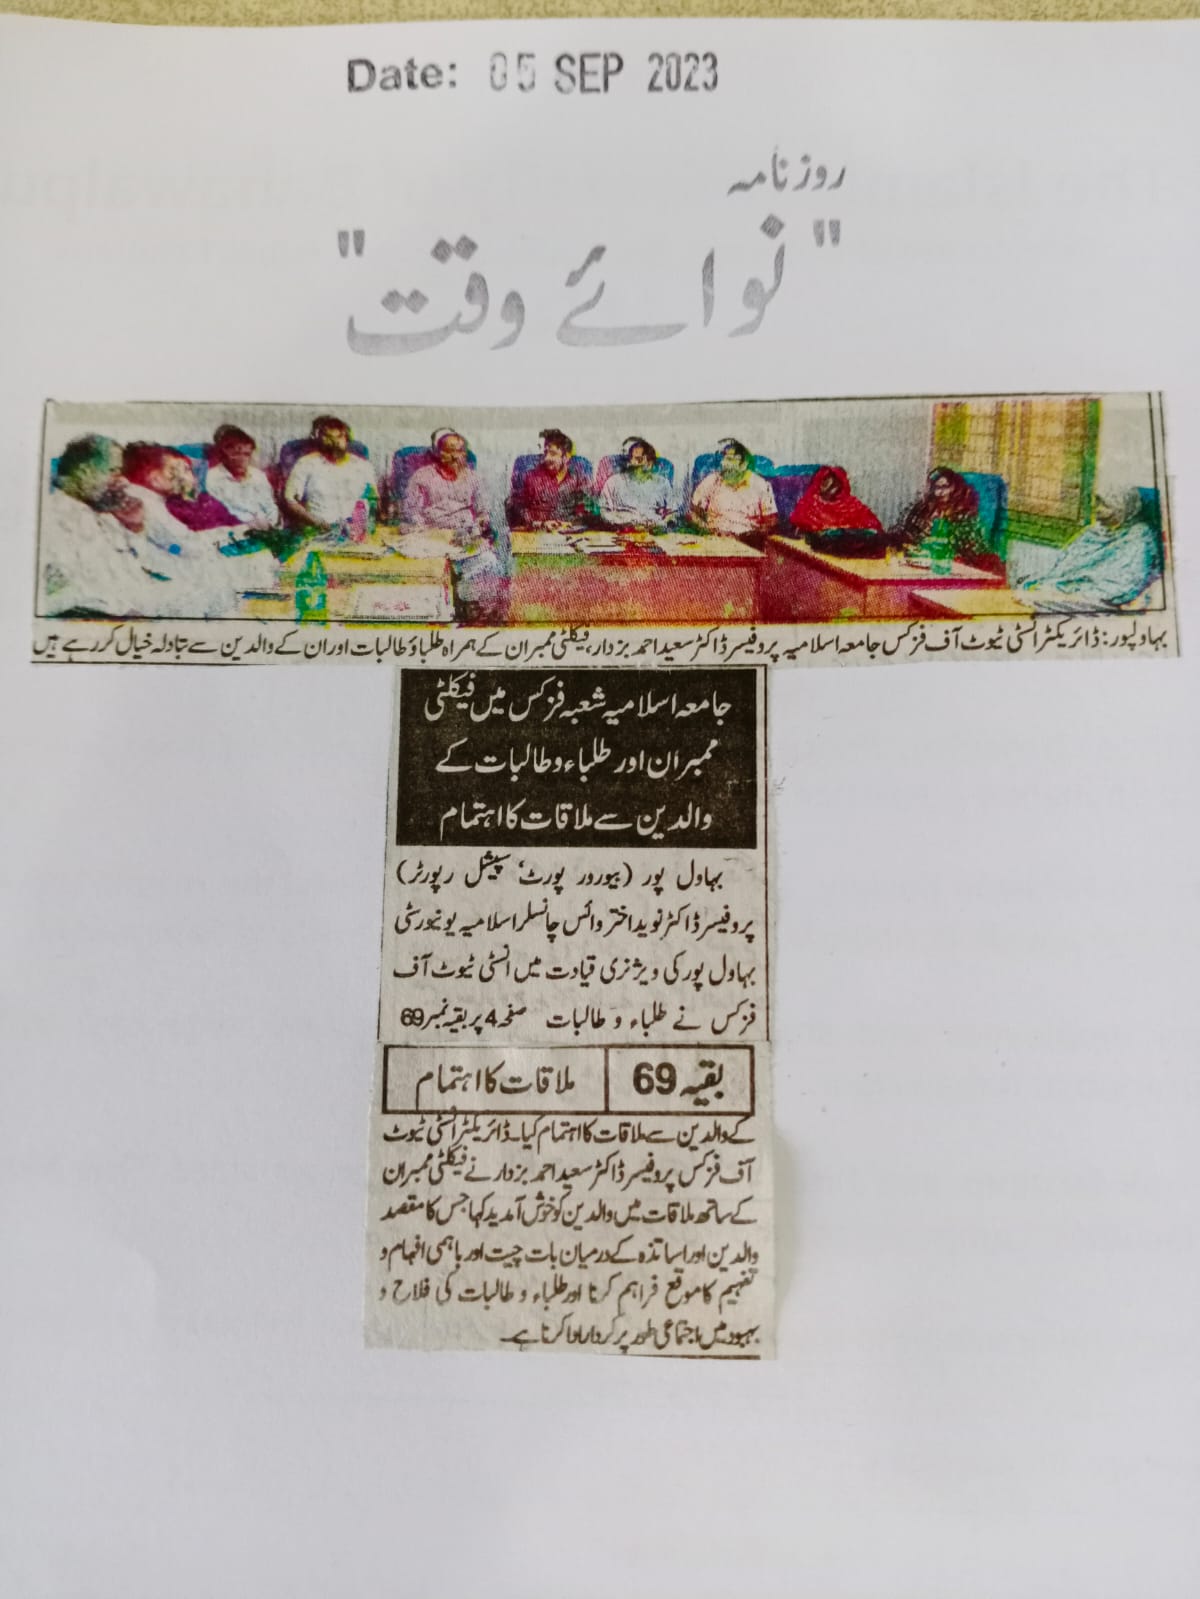 Date: 05 SEP 2023
روزنامہ
"نوائے وقت"
بہاولپور: ڈائریکٹر انسٹی ٹیوٹ آف فزکس جامعہ اسلامیہ پروفیسر ڈاکٹر سعید احمد بزدار، فیکلٹی ممبران کے ہمراہ طلباؤ طالبات اور ان کے والدین سے تبادلہ خیال کر رہے ہیں
جامعہ اسلامیہ شعبہ فزکس میں فیکلٹی
ممبران اور طلباء و طالبات کے
والدین سے ملاقات کا اہتمام
بہاول پور (بیورو رپورٹ‘ سپیشل رپورٹر)
پروفیسر ڈاکٹر نوید اختر وائس چانسلر اسلامیہ یونیورسٹی
بہاول پور کی ویژنری قیادت میں انسٹی ٹیوٹ آف
فزکس نے طلباء و طالبات صفحہ 4 پر بقیہ نمبر 69
بقیہ 69 ملاقات کا اہتمام
کے والدین سے ملاقات کا اہتمام کیا۔ ڈائریکٹر انسٹی ٹیوٹ
آف فزکس پروفیسر ڈاکٹر سعید احمد بزدار نے فیکلٹی ممبران
کے ساتھ ملاقات میں والدین کو خوش آمدید کہا جس کا مقصد
والدین اور اساتذہ کے درمیان بات چیت اور باہمی افہام و
تفہیم کا موقع فراہم کرنا اور طلباء و طالبات کی فلاح و
بہبود میں اجتماعی طور پر کردار ادا کرنا ہے۔